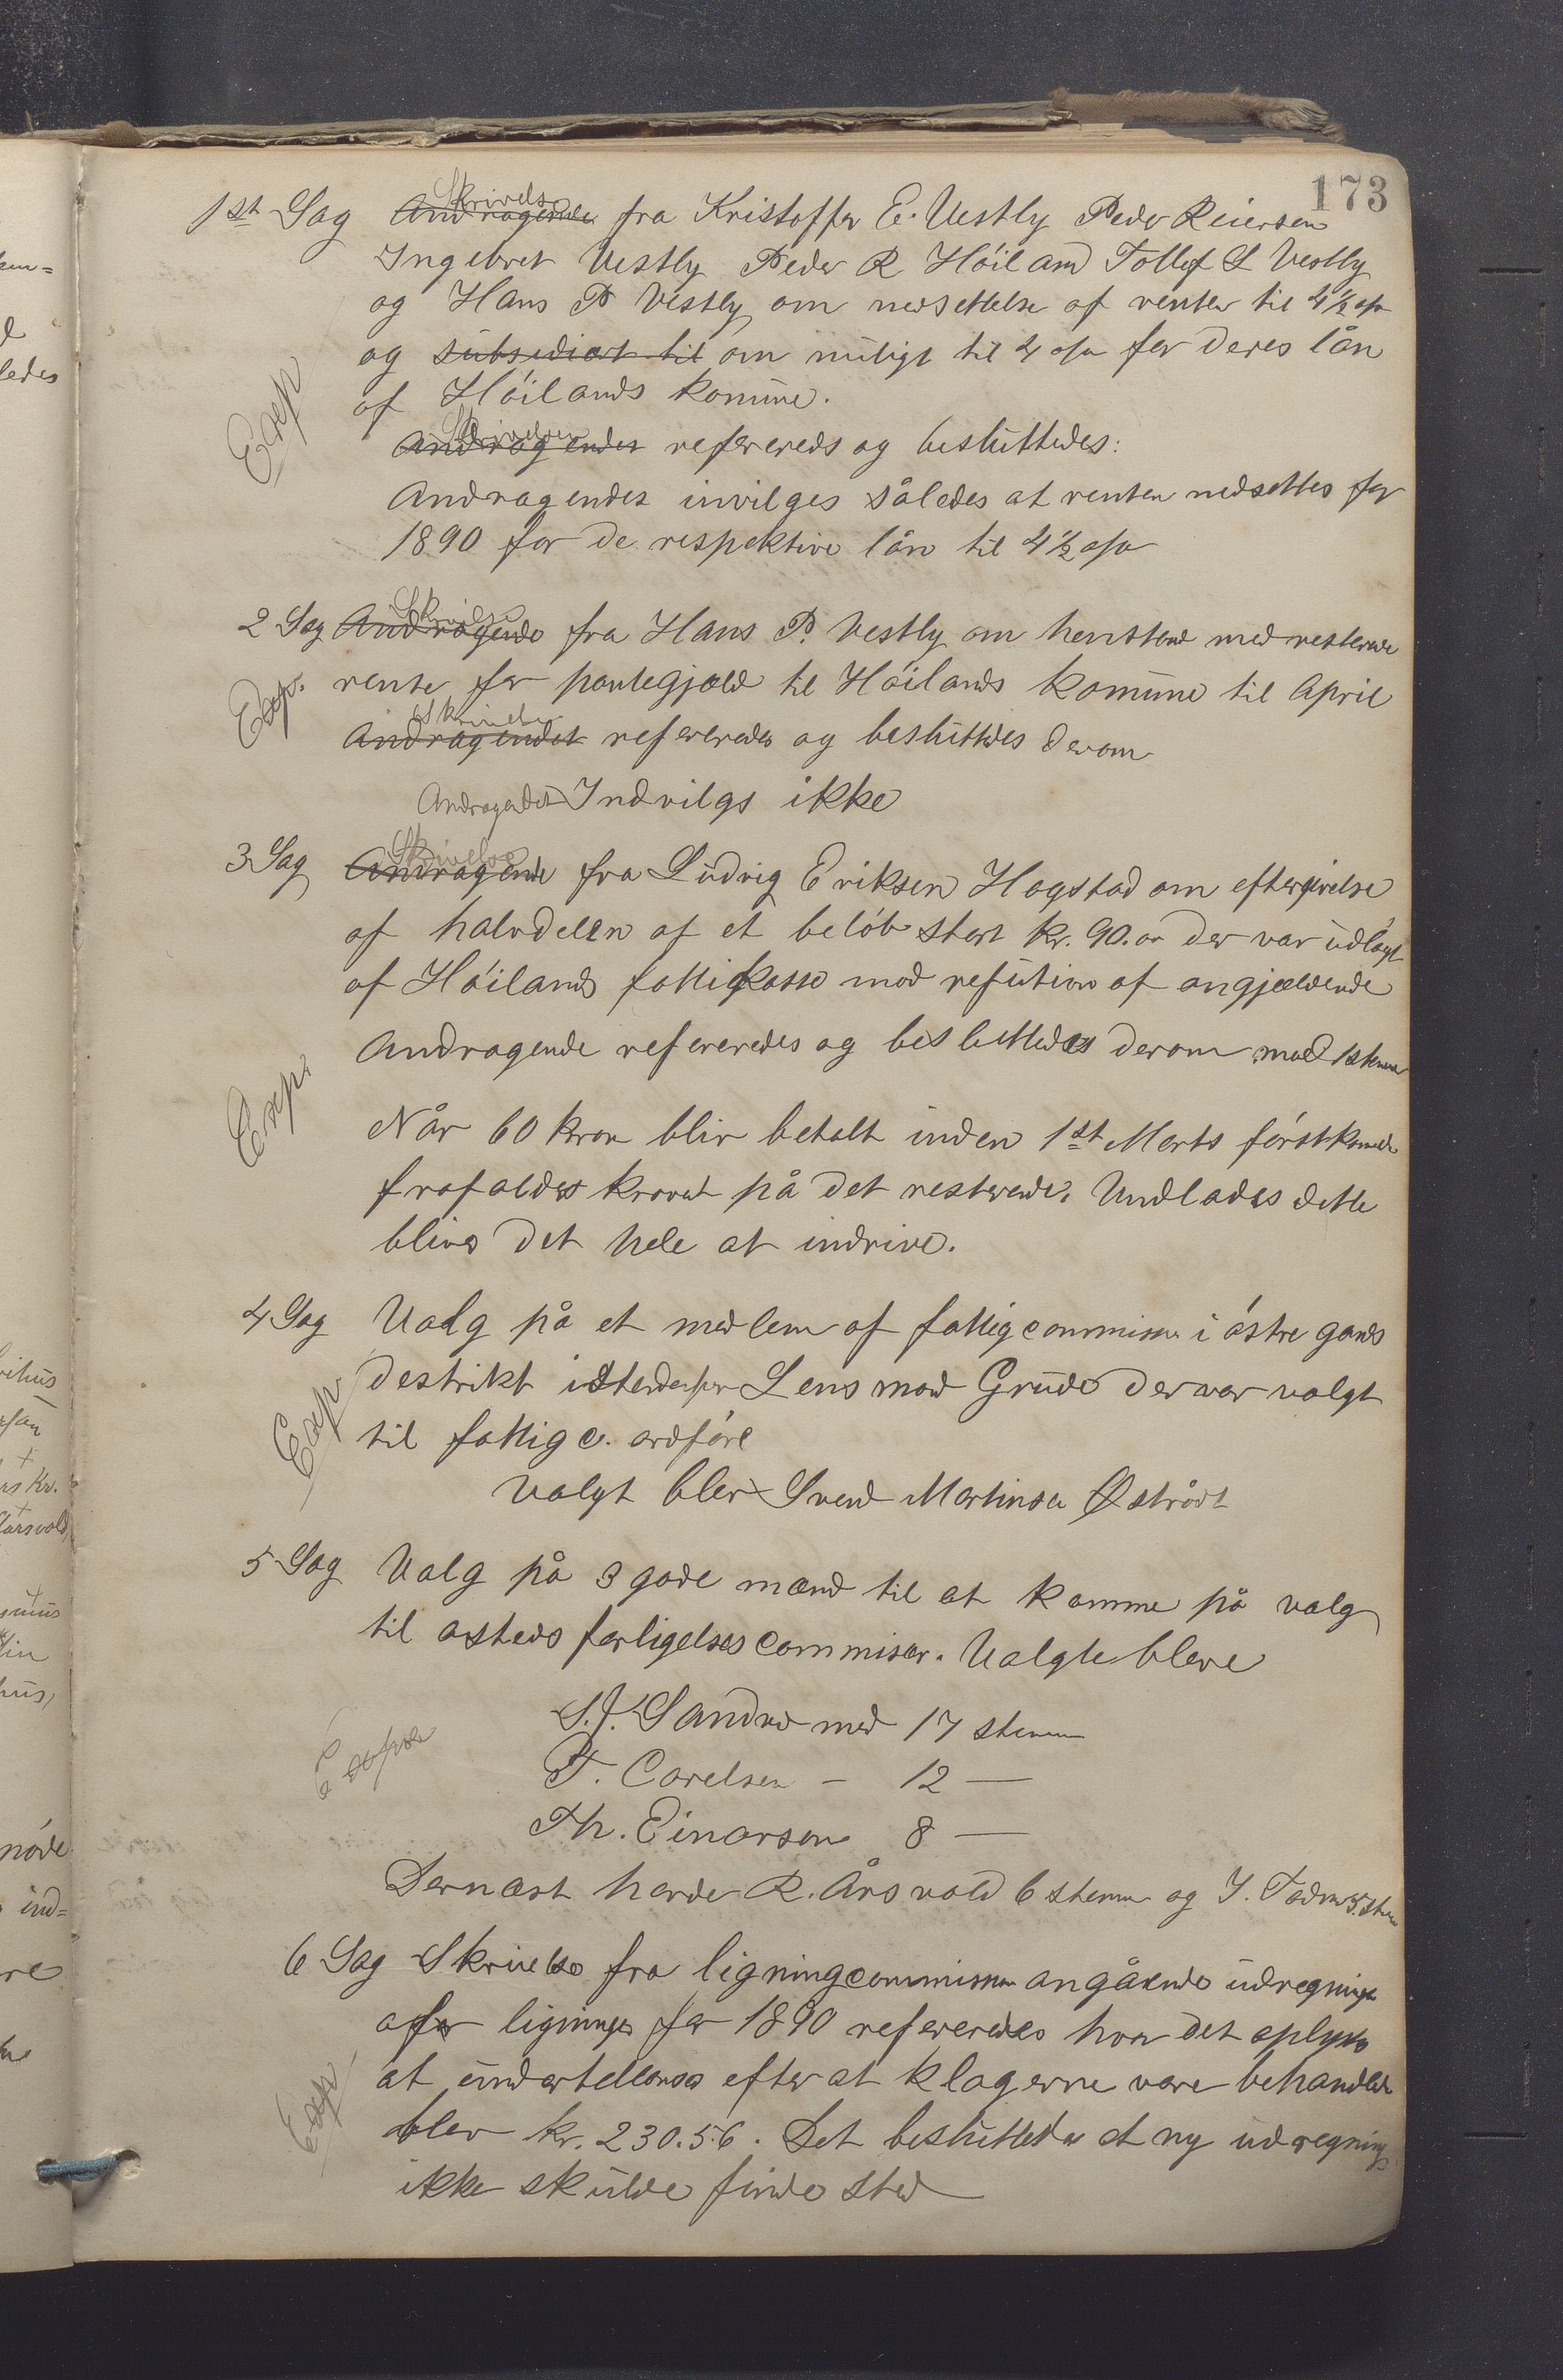 173
1st Sag Skrivelse Andragende fra Kristoffer E. Vestly Peder Reiersen
Ingebret Vestly Peder R Høiland Tollef L Vestly
og Hans P Vestly om nedsettelse af renter til 4½ o/o
og subsidiært til om muligt til 4 o/o for deres lån
af Høilands komune.
Exp
Skrivelsen Andragendet referereds og besluttedes:
Andragendet invilges således at renten nedsettes for
1890 for de respektive lån til 4½ o/o
2 Sag Skrivelse Andragende fra Hans P. Vestly om henstand med resterende
rente for pantegjæld til Høilands komune til April
Exp.
Skrivelsen Andragendet refereredes og besluttedes derom
Andragendet Indvilgs ikke
3 Sag Skrivelse Andragende fra Ludvig Eriksen Hogstad om eftergivelse
af halvdelen af et beløb stort kr. 90.00 der var udlagt
af Høilands fattigkasse mod refution af angjældende
Andragende refereredes og besluttedes derom mod 1 stemme
Exp.
Når 60 kron blir betalt inden 1st Marts førstkomende
frafaldes kravet på det resterende. Undlades dette
blives det hele at indrive.
4 Sag Valg på et medlem af fattigcommision i østre gands
destrikt istedenfor Lensmand Grude der var valgt
til fattig c. ordføre
Exp
valgt blev Svend Martinsen Østrådt
5 Sag Valg på 3 gode mænd til at komme på valg
til asteds forligelses commisær. Valgte bleve
S. J. Sandve med 17 stemmer
T. Carelsen – 12 —
Th. Einarsen 8 —
Dernæst havde R. Årsvold 6 stemmer og J. 5 stem
6 Sag Skrivelse fra ligningcommission angående udregningen
af ligningen for 1890 refereredes hvor det oplystes
at efter at klagerne vare behandlede
Exp
blev kr. 230.56. Det besluttedes at ny udregning
ikke skulde finde sted